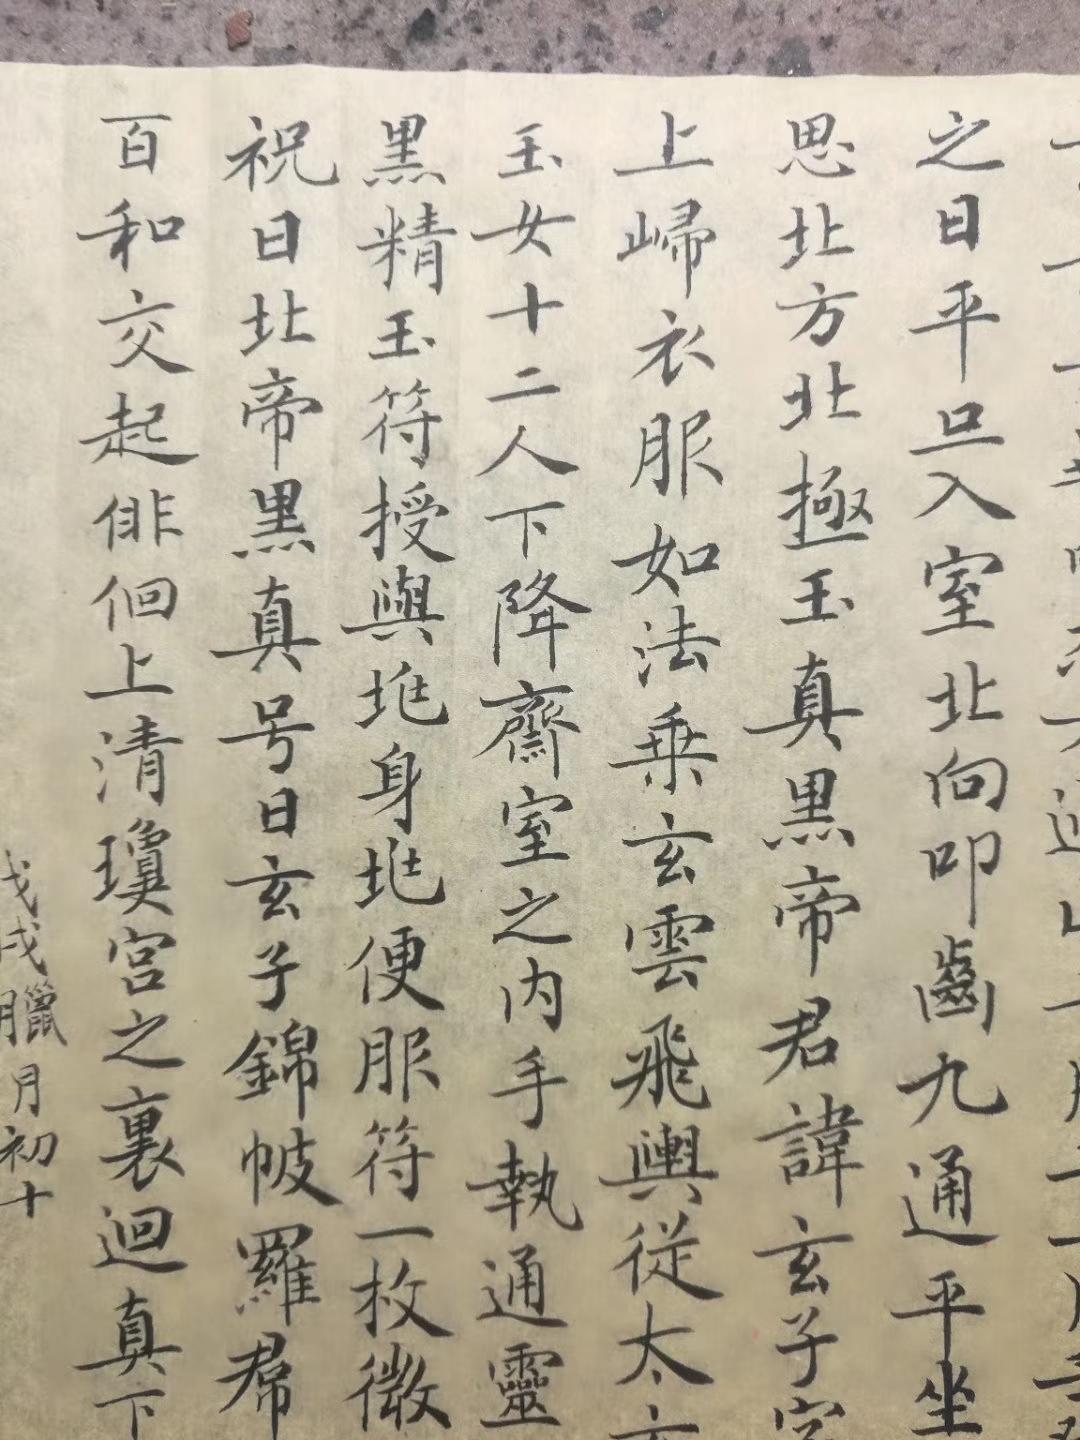 之日平旦入室北向叩齒九通平坐
思北方北極玉真黑帝君諱玄子字
上歸衣服如法乗玄雲飛輿從太玄
玉女十二人下降齋室之内手執通靈
黑精玉符授與兆身兆便服符一枚微
祝曰北帝黑真号曰玄子錦帔羅帬
百和交起俳佪上清瓊宫之裏迴真下
戊戌臘月初十